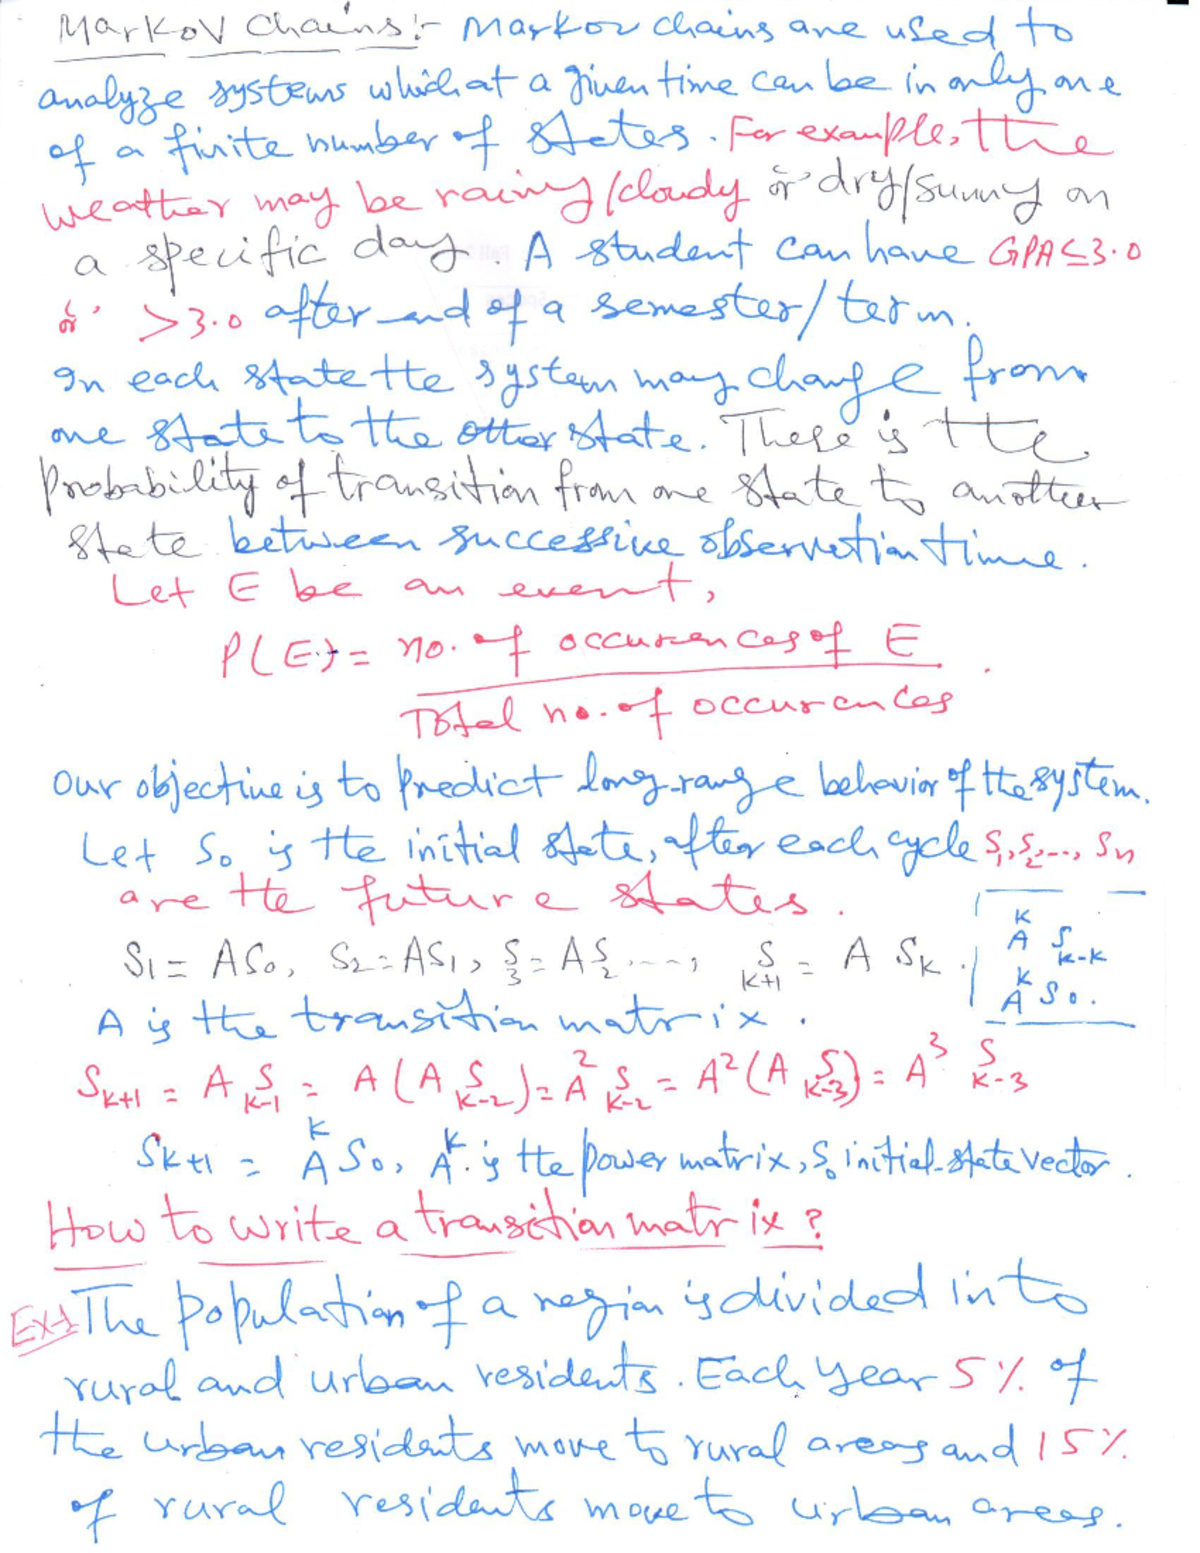 Markov Chains:- Markov chains are used to
analyze systems which at a given time can be in only one
of a finite number of states. For example, the
weather may be rainy/cloudy or dry/sunny on
a specific day. A student can have GPA ≤ 3.0
or > 3.0 after end of a semester/term.
In each state the system may change from
one state to the other state. There is the
probability of transition from one state to another
state between successive observation time.
Let E be an event,
P(E) = no. of occurences of E
Total no. of occurances
Our objective is to predict long-range behavior of the system.
Let S₀ is the initial state, after each cycle S₁, S₂, ..., Sn
are the future states.
S₁ = AS₀, S₂ = AS₁, S₃ = AS₂ ----, S_{K+1} = A S_K.
A^K S_{K-K}
A^K S₀.
A is the transition matrix.
S_{K+1} = A S_{K-1} = A(A S_{K-2}) = A² S_{K-2} = A²(A S_{K-3}) = A³ S_{K-3}
S_{K+1} = A^K S₀, A^K is the power matrix, S₀ initial-state vector.
How to write a transition matrix?
Ex-1 The population of a region is divided into
rural and urban residents. Each year 5% of
the urban residents move to rural areas and 15%
of rural residents move to urban areas.